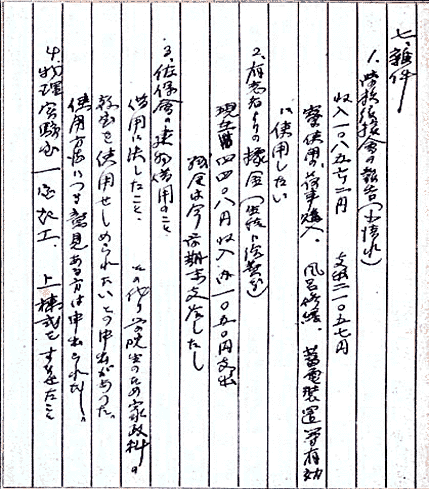 七、雑件
1、学校後援会の報告(
収入一〇八五六二円 支出二一〇五七円
寮使用の荷車購入、風呂修繕、蓄電装置等有効
に使用したい
2、有志者よりの醵金(
現在四四〇八円収入 内一〇五〇円支出
残金は今学期末支出したし
3、佐保会の建物借用のこと
借用に決したこと、その代り 入院生のため家政科の
教室を使用せしめられたいとの申出があつた。
使用方法につき意見ある方は申出られたし。
4、物理実験室一応竣工、上棟式をすませたこと